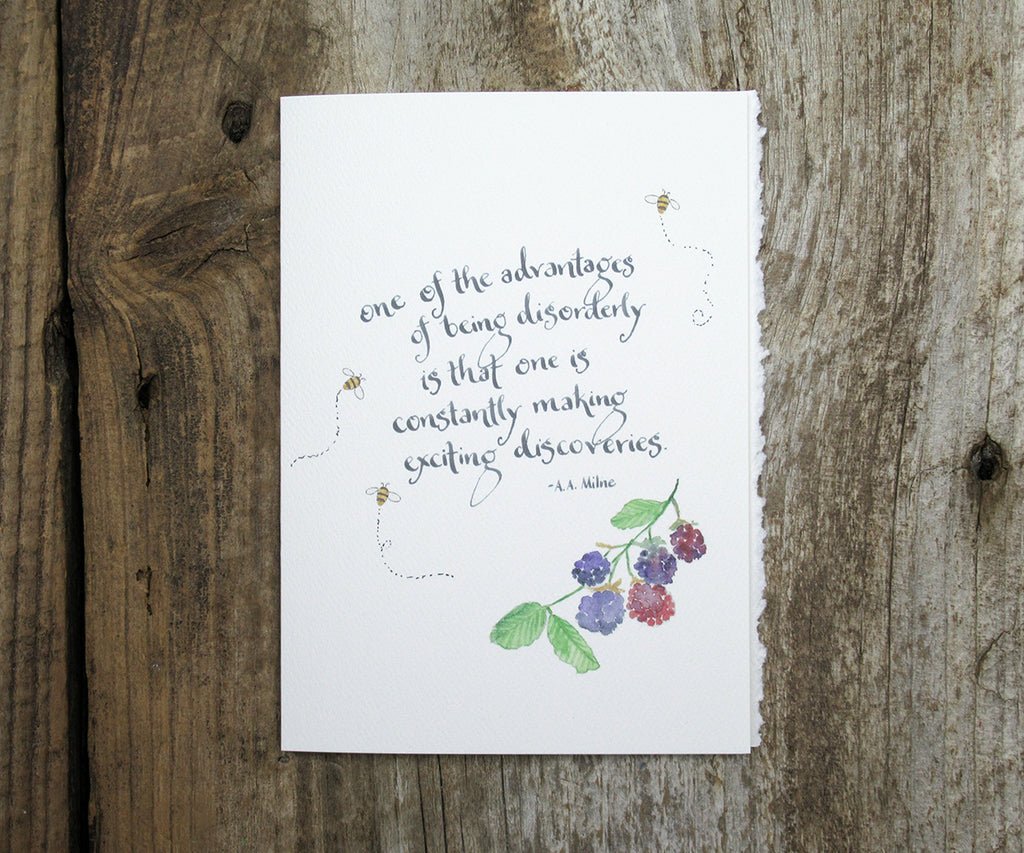 one of the advantages
of being disorderly
is that one is
constantly making
exciting discoveries.
-A.A. Milne